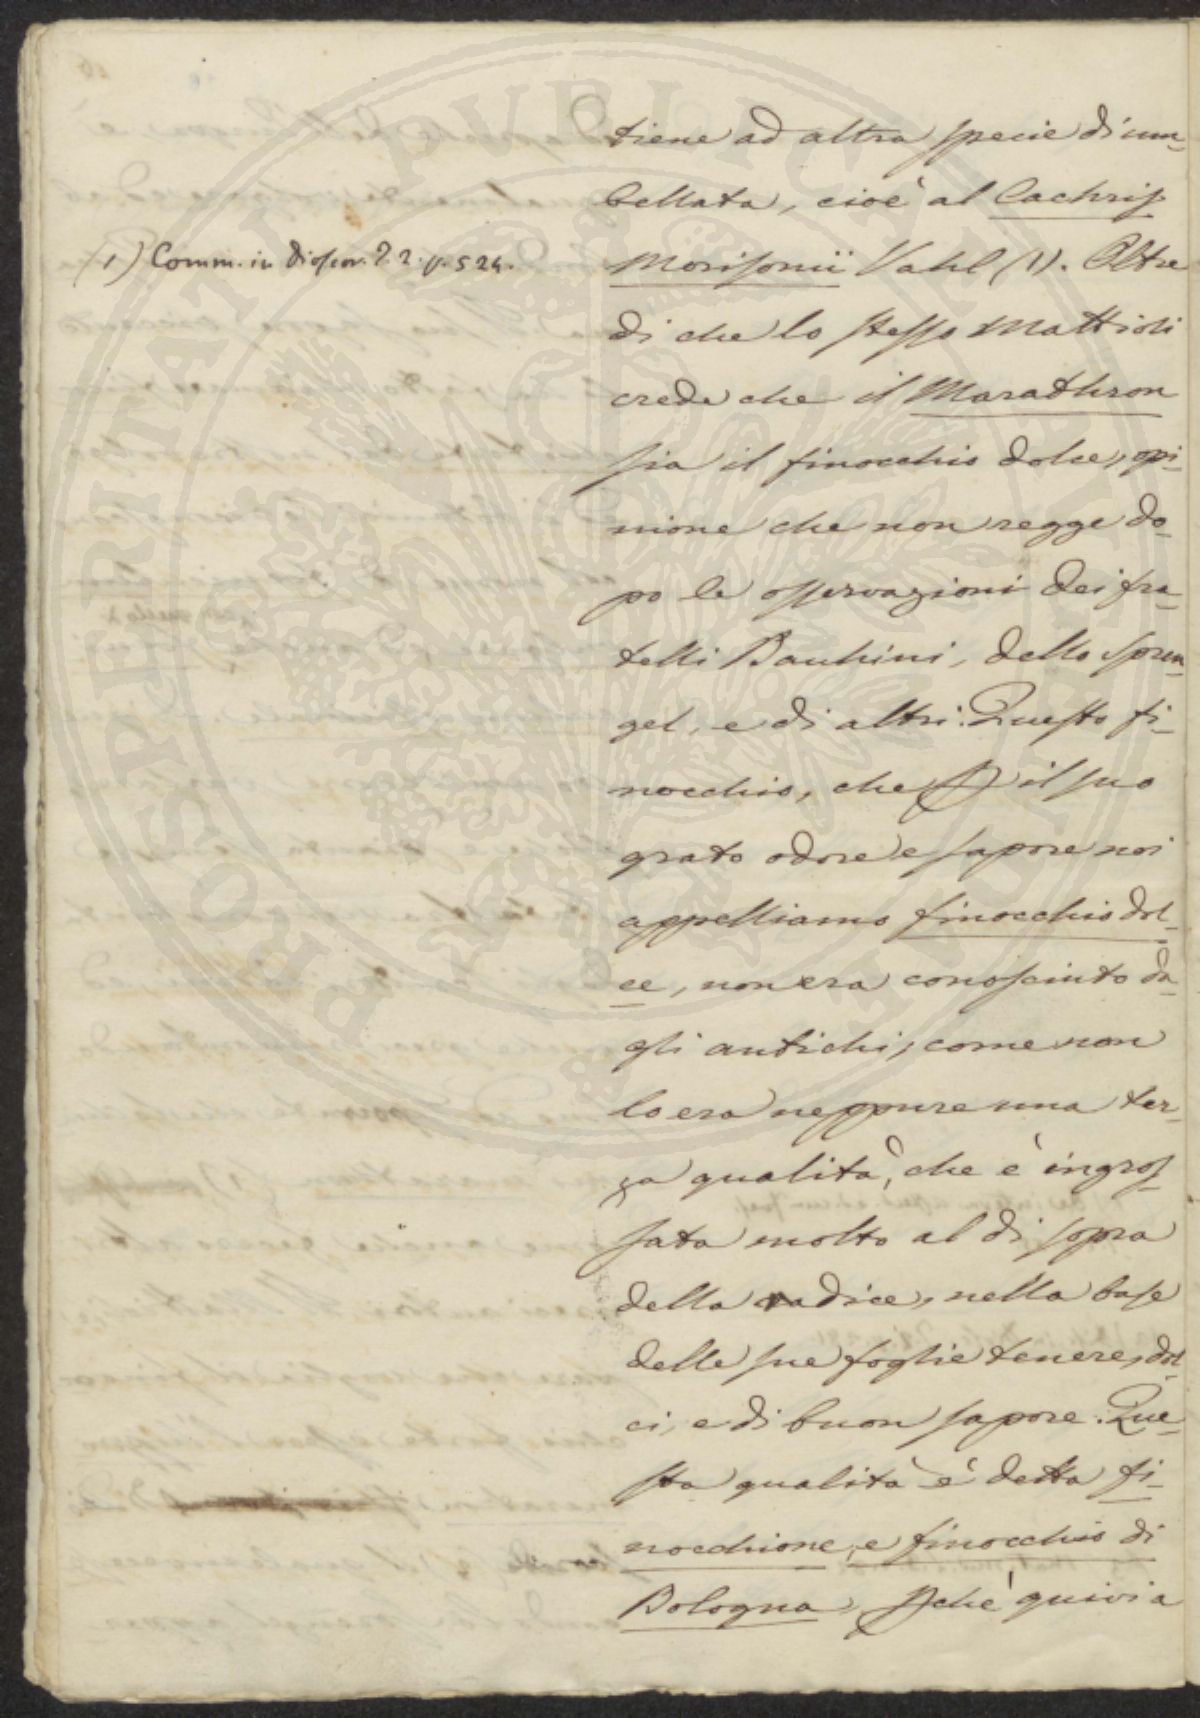 tiene ad altra specie di um-
bellata, cioè al Cachris
(1) Comm. in Dioscor. T. 2. p. 524.
Morisonii Vahl (1). Oltre
di che lo stesso Mattioli
crede che il Marathron
sia il finocchio dolce, opi-
nione che non regge do-
po le osservazioni dei fra-
telli Bauhini, dello Spren-
gel, e di altri. Questo fi-
nocchio, che p il suo
grato odore e sapore noi
appelliamo finocchio dol-
ce, non era conosciuto da-
gli antichi, come non
lo era neppure una ter-
za qualità, che è ingros-
sata molto al di sopra
della radice, nella base
delle sue foglie tenere, dol-
ci, e di buon sapore. Que-
sta qualità è detta fi-
nocchione, e finocchio di
Bologna, pchè quivi a
PROSPERITATI PVBLICAE